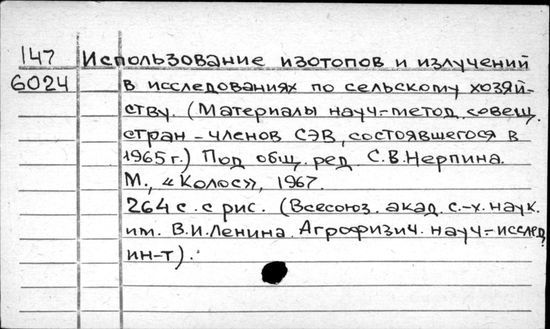 147 Использование изотопов и излучений
6024 в исследованиях по сельскому хозяй-
ству. (Материалы науч.-метод. совещ.
стран-членов СЭВ, состоявшегося в
1965 г.) Под общ. ред. С.В.Нерпина.
М., «Колос», 1967.
264 с. с рис. (Всесоюз. акад. с.-х. наук.
им. В.И.Ленина. Агрофизич. науч.-исслед.
ин-т).